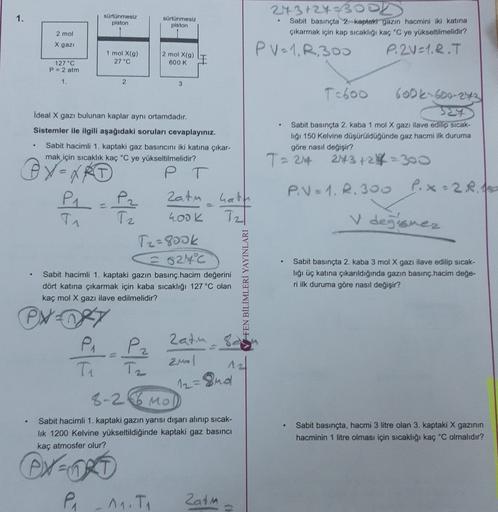 1.
2 mol
X gazı
127 °C
P = 2 atm
1.
sürtünmesiz
piston
1 mol X(g)
27 °C
2
sürtünmesiz
piston
2 mol X(g)
600 K
3
İdeal X gazı bulunan kaplar aynı ortamdadır.
Sistemler ile ilgili aşağıdaki soruları cevaplayınız.
• Sabit hacimli 1. kaptaki gaz basıncını iki katına çıkar-
mak için sıcaklık kaç °C ye yükseltilmelidir?
PV=nRT P T
P1/T1 = P2/T2 2atm/400K = 4atm/T2
T2=800K
= 527°C
• Sabit hacimli 1. kaptaki gazın basınç.hacim değerini
dört katına çıkarmak için kaba sıcaklığı 127 °C olan
kaç mol X gazı ilave edilmelidir?
PV=nRT
P1/T1 = P2/T2 2atm/2mol = 8atm/n2
n2=8mol
8-2 6 mol
• Sabit hacimli 1. kaptaki gazın yarısı dışarı alınıp sıcak-
lık 1200 Kelvine yükseltildiğinde kaptaki gaz basıncı
kaç atmosfer olur?
PV=nRT
P1 = n1.T1 2atm =
FEN BİLİMLERİ YAYINLARI
273+27=300K
• Sabit basınçta 2. kaptaki gazın hacmini iki katına
çıkarmak için kap sıcaklığı kaç °C ye yükseltilmelidir?
PV=1.R.300 P.2V=1.R.T
T=600 600K-600-273
327
• Sabit basınçta 2. kaba 1 mol X gazı ilave edilip sıcak-
lığı 150 Kelvine düşürüldüğünde gaz hacmi ilk duruma
göre nasıl değişir?
T=27 273+27=300
P.V=1.R.300 P.x=2.R.150
V değişmez
• Sabit basınçta 2. kaba 3 mol X gazı ilave edilip sıcak-
lığı üç katına çıkarıldığında gazın basınç.hacim değe-
ri ilk duruma göre nasıl değişir?
• Sabit basınçta, hacmi 3 litre olan 3. kaptaki X gazının
hacminin 1 litre olması için sıcaklığı kaç °C olmalıdır?